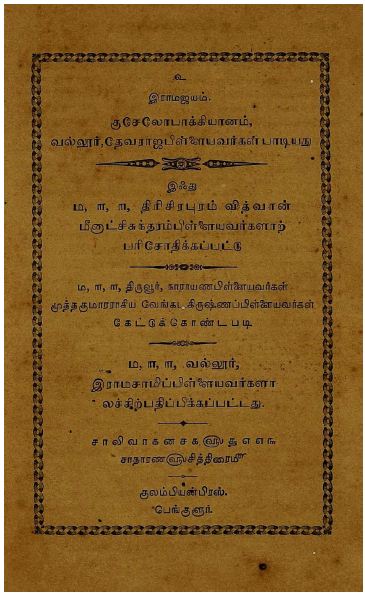 உ
இராமஜயம்.
குசேலோபாக்கியானம்,
வல்லூர், தேவராஜபிள்ளையவர்கள் பாடியது
இஃது
ம, ா, ா, திரிசிரபுரம் வித்வான்
மீனாட்சிசுந்தரம்பிள்ளையவர்களாற்
பரிசோதிக்கப்பட்டு
ம, ா, ா, திருவூர், நாராயணபிள்ளையவர்கள்
முத்தகுமாரராகிய வேங்கடகிருஷ்ணப்பிள்ளையவர்கள்
கேட்டுக்கொண்டபடி
ம, ா, ா, வல்லூர்,
இராமசாமிப்பிள்ளையவர்களா
லச்சிற்பதிப்பிக்கப்பட்டது.
சாலிவாகனசக௵ த௭௭௩
சாதாரண௵ சித்திரை௴
குலம்பியன்பிரஸ்.
பெங்களூர்.